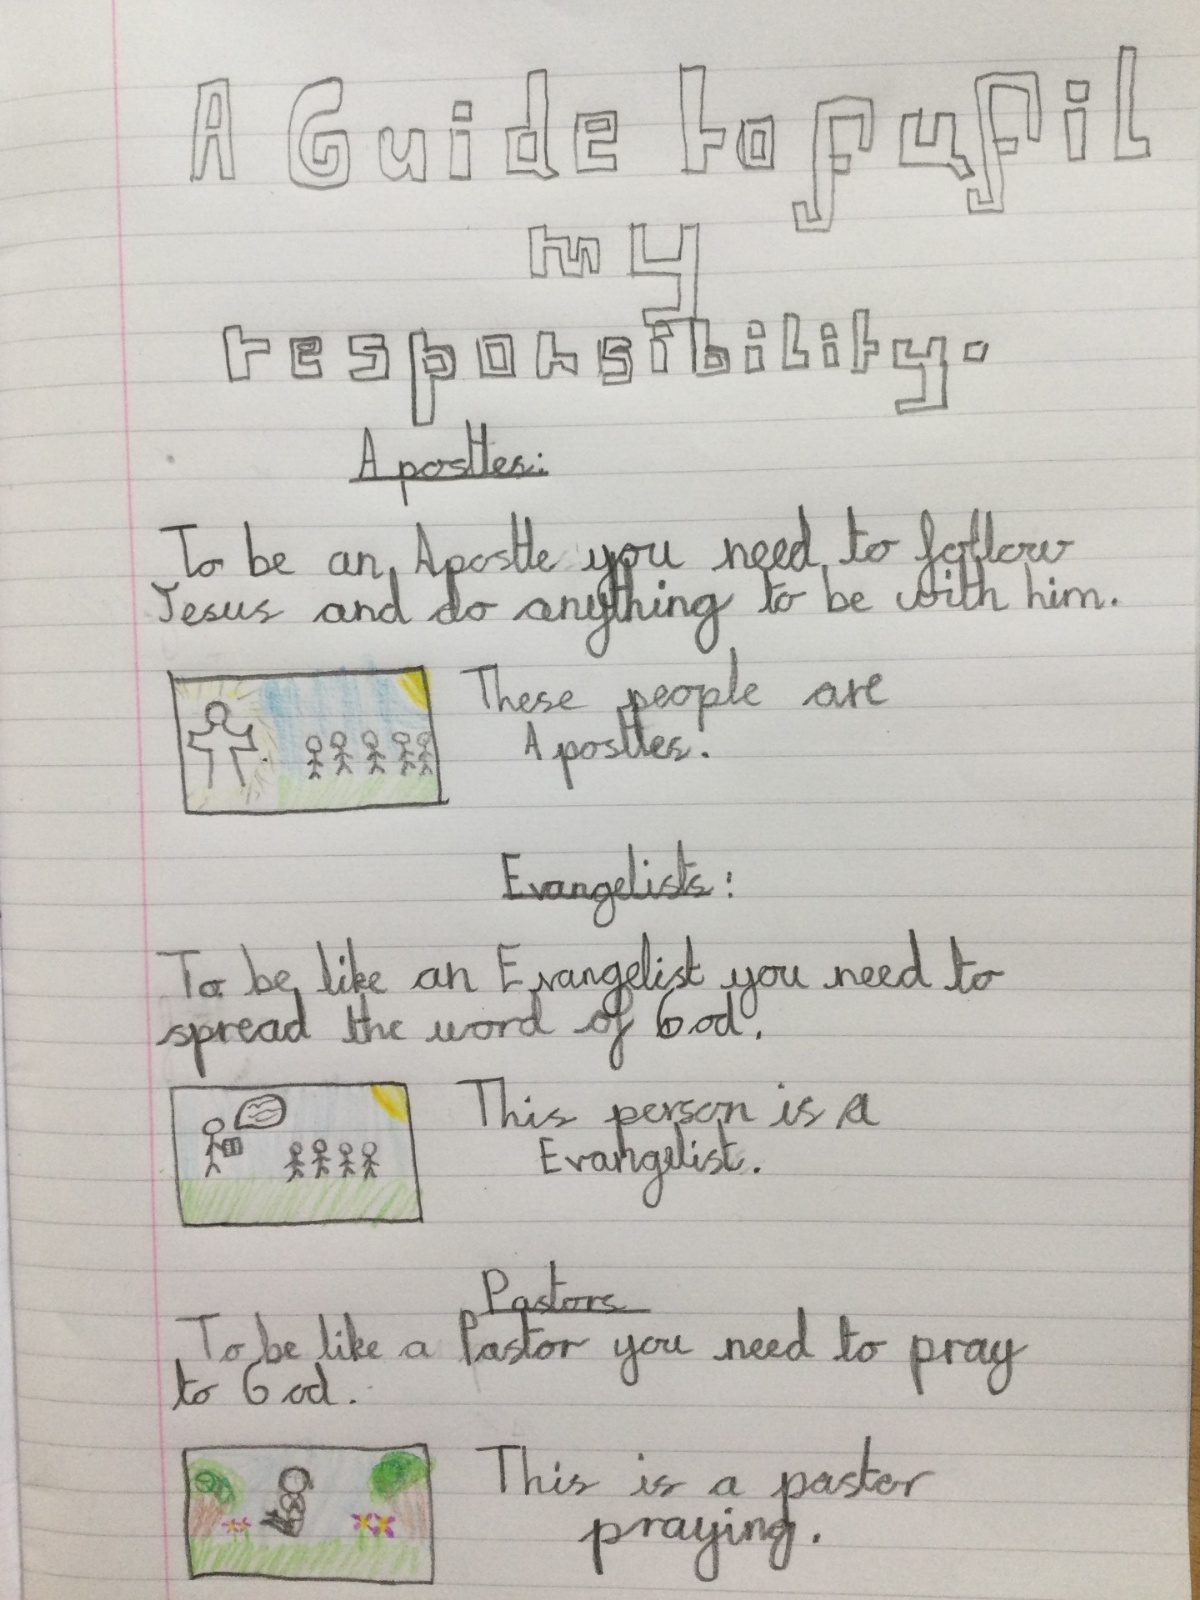 A Guide to fufil
my
responsibility.
Apostles:
To be an Apostle you need to follow
Jesus and do anything to be with him.
These people are
Apostles.
Evangelists:
To be like an Evangelist you need to
spread the word of God.
This person is a
Evangelist.
Pastors
To be like a Pastor you need to pray
to God.
This is a pastor
praying.